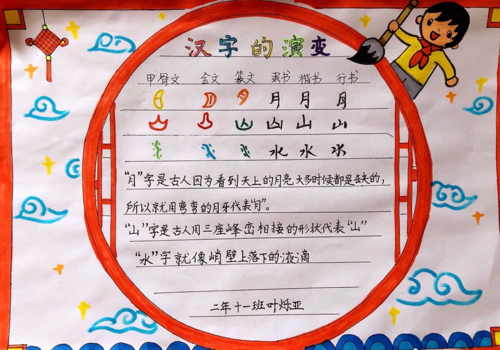 汉字的演变
甲骨文 金文 篆文 隶书 楷书 行书
月 月 月
山 山 山
水 水 水
"月"字是古人因为看到天上的月亮大多时候都是缺的,
所以就用弯弯的月牙代表"月"。
"山"字是古人用三座峰峦相接的形状代表"山"
"水"字就像峭壁上落下的液滴
二年十一班叶烁亚